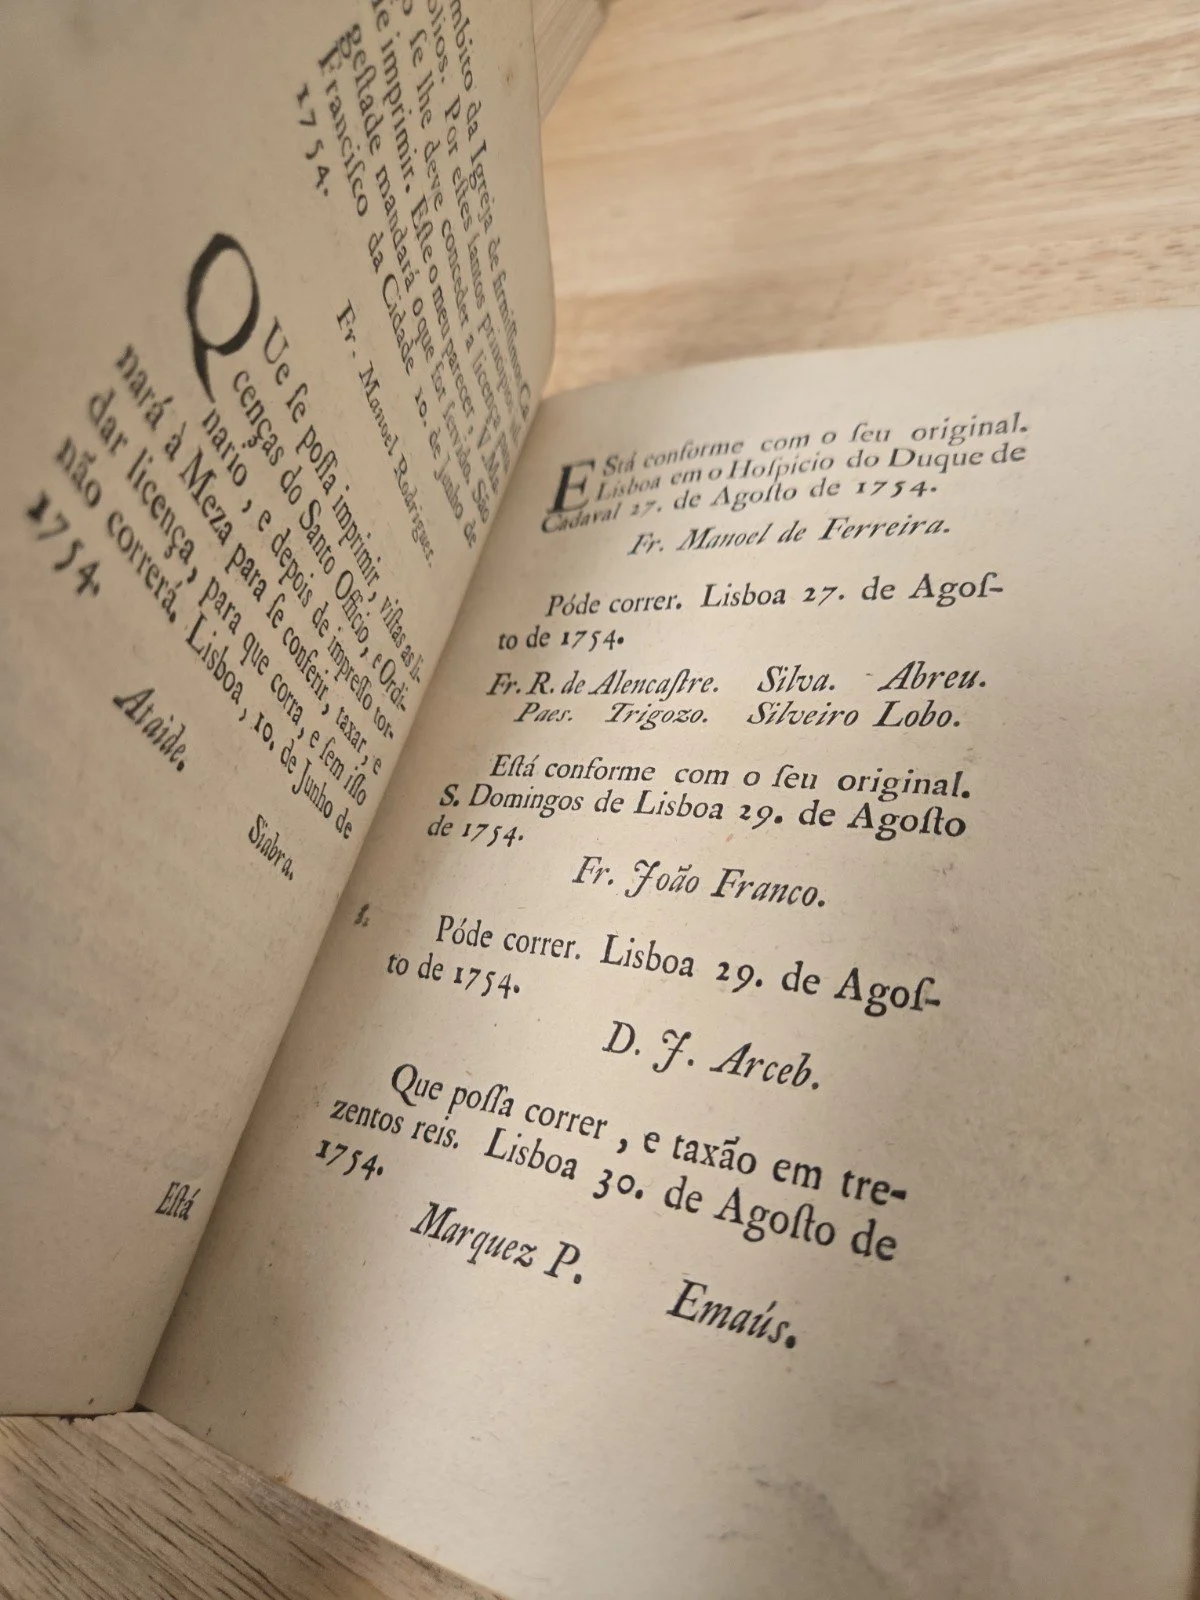 mbito da Igreja de firmissimas Co
olios. Por estes santos principios
o ſe lhe deve conceder a licença
e imprimir. Eſte o meu parecer, V. Ma
geſtade mandará o que for ſervido. São
Franciſco da Cidade 10. de Junho de
1754.
Fr. Manoel Rodrigues.
QUe ſe poſſa imprimir, viſtas as li-
cenças do Santo Officio, e Ordi-
nario, e depois de impreſſo tor-
nará à Meza para ſe conferir, taxar, e
dar licença, para que corra, e ſem iſſo
não correrá. Lisboa, 10. de Junho de
1754.
Ataide. Siabra.
Eſtá
EStá conforme com o ſeu original.
Lisboa em o Hoſpicio do Duque de
Cadaval 27. de Agoſto de 1754.
Fr. Manoel de Ferreira.
Póde correr. Lisboa 27. de Agoſ-
to de 1754.
Fr. R. de Alencaſtre. Silva. Abreu.
Paes. Trigozo. Silveiro Lobo.
Eſtá conforme com o ſeu original.
S. Domingos de Lisboa 29. de Agoſto
de 1754.
Fr. João Franco.
Póde correr. Lisboa 29. de Agoſ-
to de 1754.
D. J. Arceb.
Que poſſa correr, e taxão em tre-
zentos reis. Lisboa 30. de Agoſto de
1754.
Marquez P. Emaús.